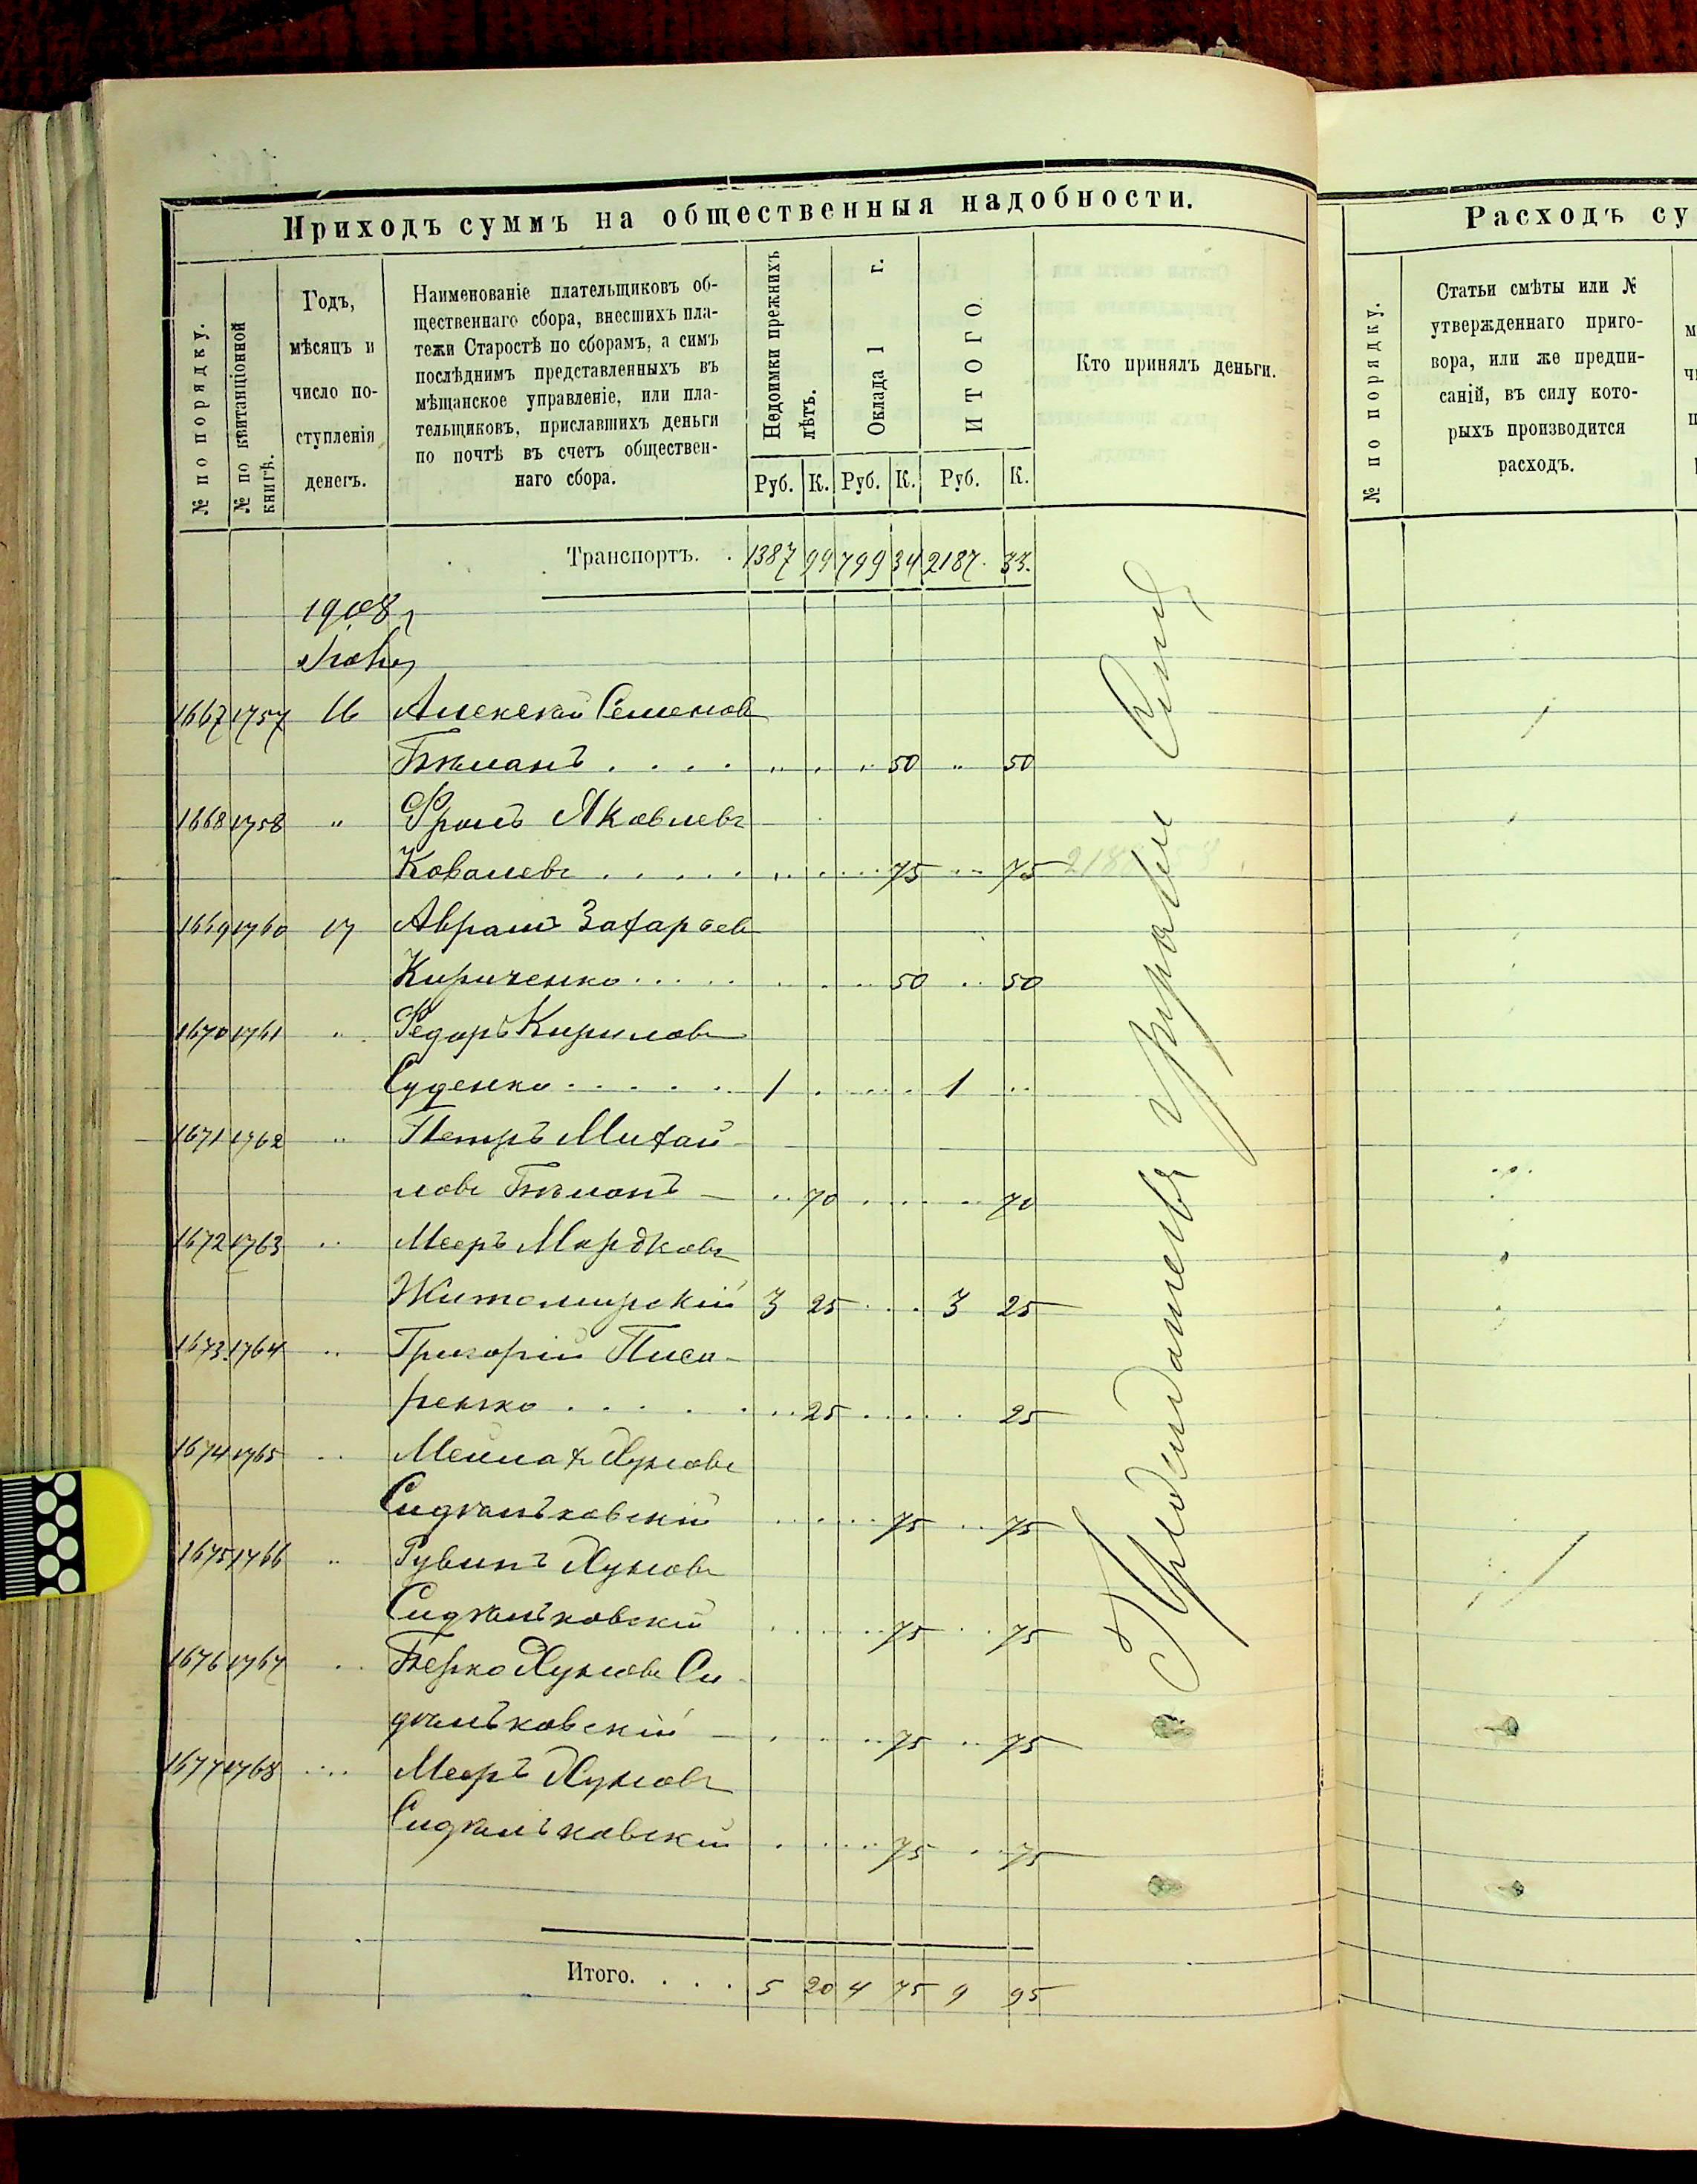 Приходъ суммъ на общественныя надобности.
№ по порядку.
№ по квитанціонной книгѣ.
Годъ,
мѣсяцъ и
число по-
ступленія
денегъ.
Наименованіе плательщиковъ об-
щественнаго сбора, внесшихъ пла-
тежи Старостѣ по сборамъ, а симъ
послѣднимъ представленныхъ въ
мѣщанское управленіе, или пла-
тельщиковъ, приславшихъ деньги
по почтѣ въ счетъ обществен-
наго сбора.
Недоимки прежнихъ лѣтъ.
Оклада 1 г.
ИТОГО
Кто принялъ деньги.
Руб. К. Руб. К. Руб. К.
Транспортъ. . 1387 99 799 34 2187. 33.
1908
1667 1757 16 Алексѣй Семенов
Бѣланъ . . . . 50 " 50
1668 1758 " Фролъ Яковлевъ
Ковалевъ . . . . . 75 75
1669 1760 17 Аврамъ Захарьев
Кириченко . . . . . 50 50
1670 1761 " Федоръ Кириловъ
Суденко . . . . . 1 1
1671 1762 " Петръ Михай-
ловъ Бѣланъ — 70 70
1672 1763 " Мееръ Мордковъ
Житомирскій 3 25 3 25
1673 1764 " Григорій Писа-
ренко . . . . . 25 25
1674 1765 " Хуновъ
75 75
1675 1766 " Рувинъ Хуновъ
75 75
1676 1767 " Берко Хуновъ Си-
75 75
1677 1768 " Мееръ Хуновъ
75 75
Итого. . . . 5 20 4 75 9 95
Расходъ су
№ по порядку.
Статьи смѣты или №
утвержденнаго приго-
вора, или же предпи-
саній, въ силу кото-
рыхъ производится
расходъ.